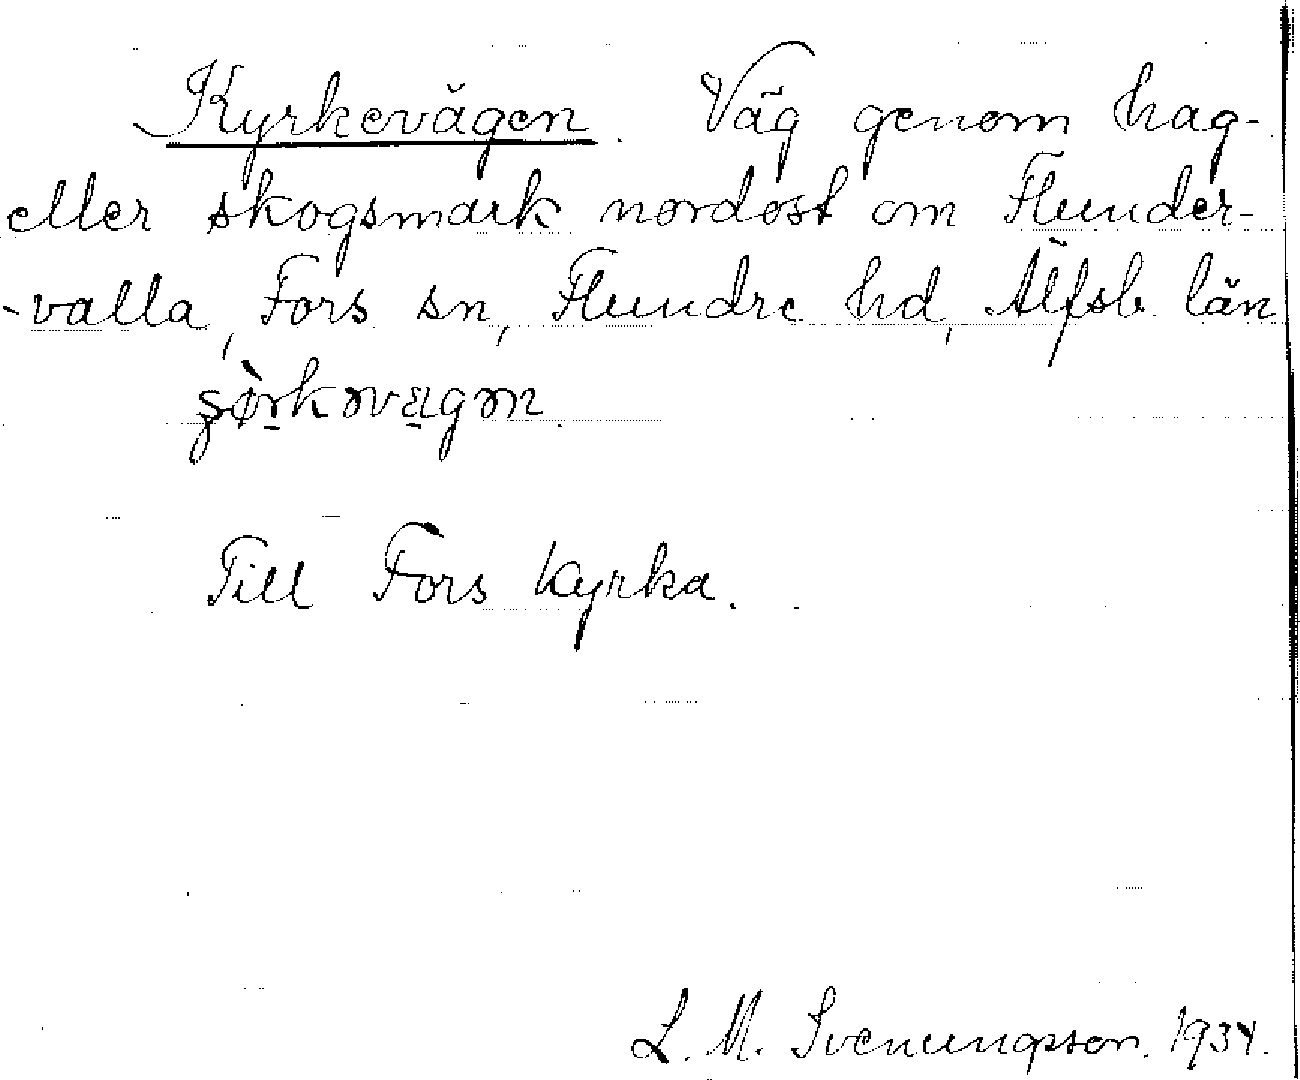 Kyrkevägen. Väg genom hag-
eller skogsmark nordost om Flunder-
-valla, Fors sn, Flundre hd, Älfsb. län
Till Fors kyrka.
L. M. Svenungsson. 1934.